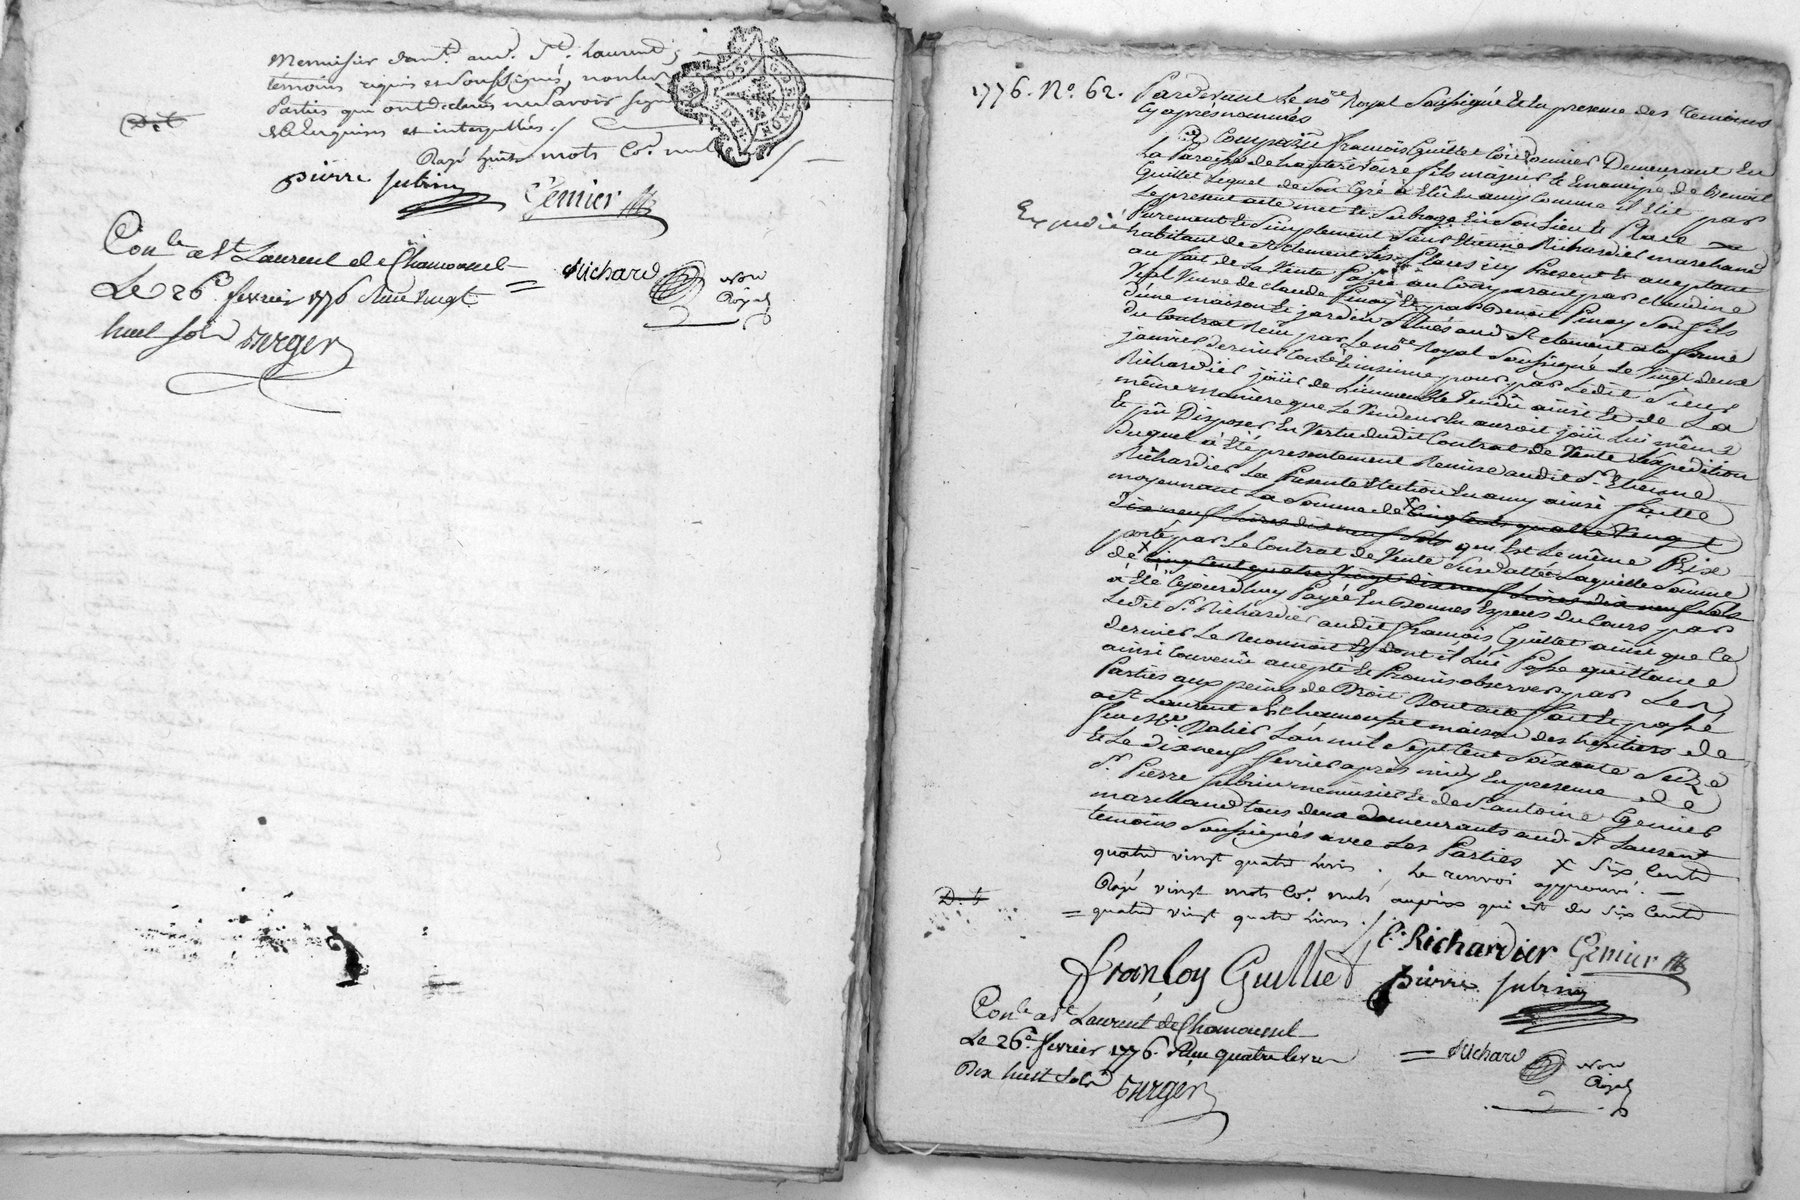 Menuisier dem.t aud. St. Laurent,
témoins requis et soussignés, non les
Parties qui ont déclaré ne savoir signer
de ce enquis et interpellés ./.
D. t
Rayé huit mots co.e nuls
pierre subrin Genier
Con.le a St Laurent de Chamousset
Le 26.e fevrier 1776 Reçu vingt
huit sols Durger
= Richard not.re Royal
1776. No. 62.
Pardevant Le no.re Royal Soussigné Et En presence des temoins
Cy après nommés
a Comparû francois Guillet Cordonnier Demeurant En
La Paroisse de hauterivoire fils majeur Et Emancipé de Benoit
Guillet Lequel de Son Gré a Elû En amy Comme il Elit par
Le present acte met Et Subroge En Son Lieu Et Place
Expedié
Purement Et Simplement Sieur Etienne Richardier marchand
habitant de St Clement Les Places icy Present Et aceptant
au fait de La Vente Passée au Comparant par Claudine
Vial Veuve de claude Pinay Et par Benoit Pinay Son fils
d'une maison Et jardin Situés aud. St Clement a la forme
du Contrat Reçû par Le no.re Royal Soussigné Le Vingt deux
janvier dernier Controlé pour par Ledit Sieur
Richardier joüir de L'immeuble Vendû ainsi Et de La
même maniere que Le Vendeur En auroit joüi Lui même
Et pû Disposer En Vertu dudit Contrat de Vente L'expedition
Duquel à Eté presentement Remise audit S.r Etienne
Richardier La Presente Election En amy ainsi faitte
moyennant La Somme de x Cinq Cents quatre Vingt
Dix neuf Livres dix neuf Sols qui Est Le même Prix
porté par Le Contrat de Vente Susdatté Laquelle Somme
de x Cinq Cent quatre Vingt dix neuf Livres dix neuf Sols
à Eté Cejourd'huy Payée En Bonnes Especes Du Cours par
Ledit S.r Richardier audit francois Guillet ainsi que Ce
dernier Le Reconnoit Et dont il Lui Passe quittance
ainsi Convenû accepté Et Promis observer par Les
Parties aux peines de Droit Dont acte fait Et passé
a St Laurent de Chamousset maison des heritiers de
feu M.e Balier L'an mil Sept Cent Soixante Seize
Et Le dix neuf fevrier après midy En presence de
S.r Pierre Subrin menuisier Et de S.r antoine Genier
marchand tous deux demeurants aud. St Laurent
temoins Soussignés avec Les Parties x Six Cents
quatre vingt quatre livres. Le renvoi approuvé. —
Rayé vingt mots co.e nuls, au prix qui est de Six Cents
D. t
= quatre vingt quatre livres ./.
E. Richardier Genier
françoy Guilliet pierre subrin
Con.le a St Laurent de Chamousset
Le 26.e fevrier 1776. Reçu quatre livres
Dix huit Sols Durger
= Richard not.re Royal